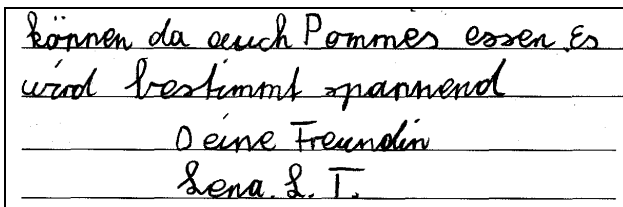 können da auch Pommes essen. Es
wird bestimmt spannend
Deine Freundin
Lena. L. T.